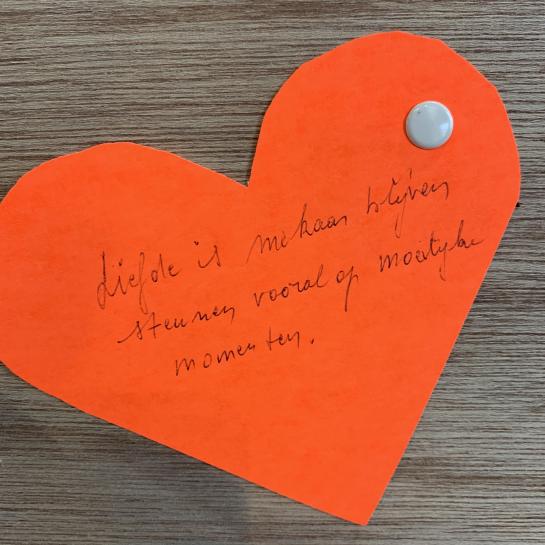 Liefde is mekaar blijven
steunen vooral op moeilijke
momenten.